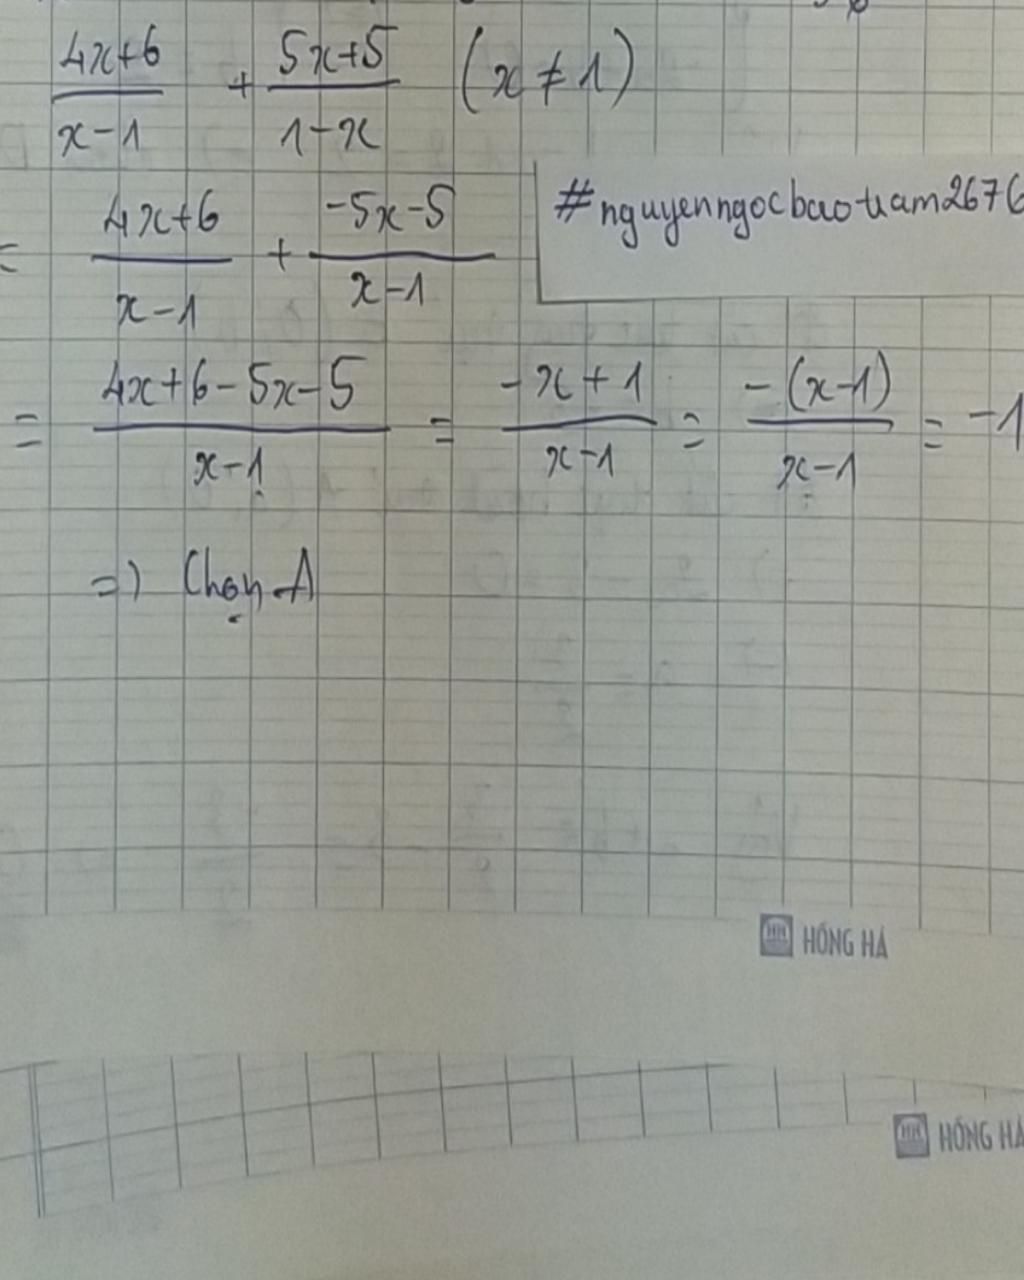 (4x+6)/(x-1) + (5x+5)/(1-x) (x ≠ 1)
= (4x+6)/(x-1) + (-5x-5)/(x-1)
#nguyenngocbaotram2676
= (4x+6-5x-5)/(x-1) = (-x+1)/(x-1) = (-(x-1))/(x-1) = -1
=) Chọn A
HH HỒNG HÀ
HH HỒNG HÀ